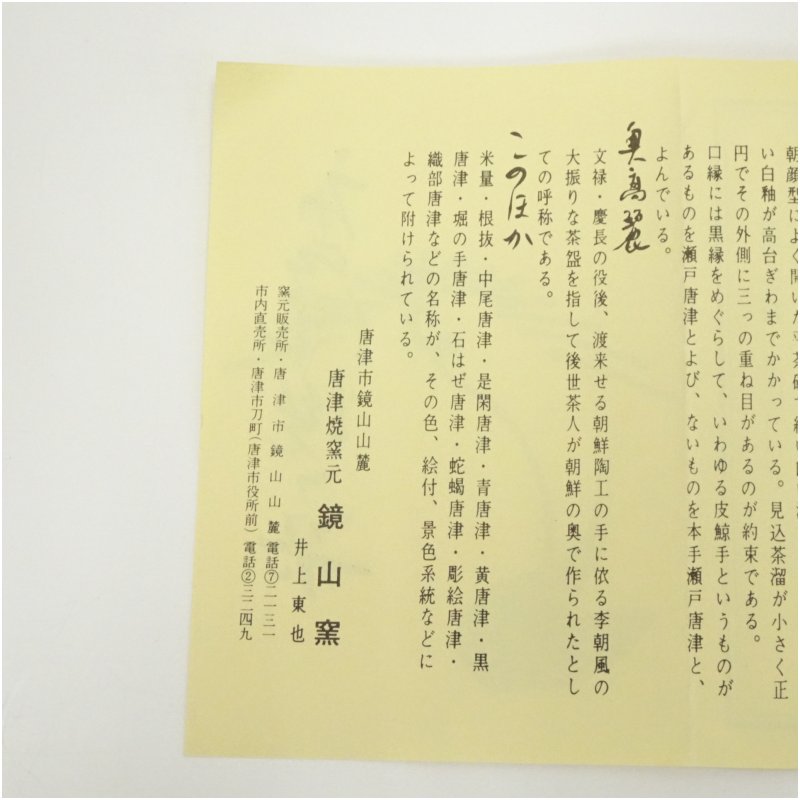 朝顔型によく開いた平茶碗で
い白釉が高台ぎわまでかかっている。見込茶溜が小さく正
円でその外側に三っの重ね目があるのが約束である。
口縁には黒縁をめぐらして、いわゆる皮鯨手というものが
あるものを瀬戸唐津とよび、ないものを本手瀬戸唐津と、
よんでいる。
奥高麗
文禄・慶長の役後、渡来せる朝鮮陶工の手に依る李朝風の
大振りな茶盌を指して後世茶人が朝鮮の奥で作られたとし
ての呼称である。
このほか
米量・根抜・中尾唐津・是閑唐津・青唐津・黄唐津・黒
唐津・堀の手唐津・石はぜ唐津・蛇蝎唐津・彫絵唐津・
織部唐津などの名称が、その色、絵付、景色系統などに
よって附けられている。
唐津市鏡山山麓
唐津焼窯元 鏡山窯
井上東也
窯元販売所・唐津市鏡山山麓 電話⑦二一三一
市内直売所・唐津市刀町(唐津市役所前) 電話②三二四九